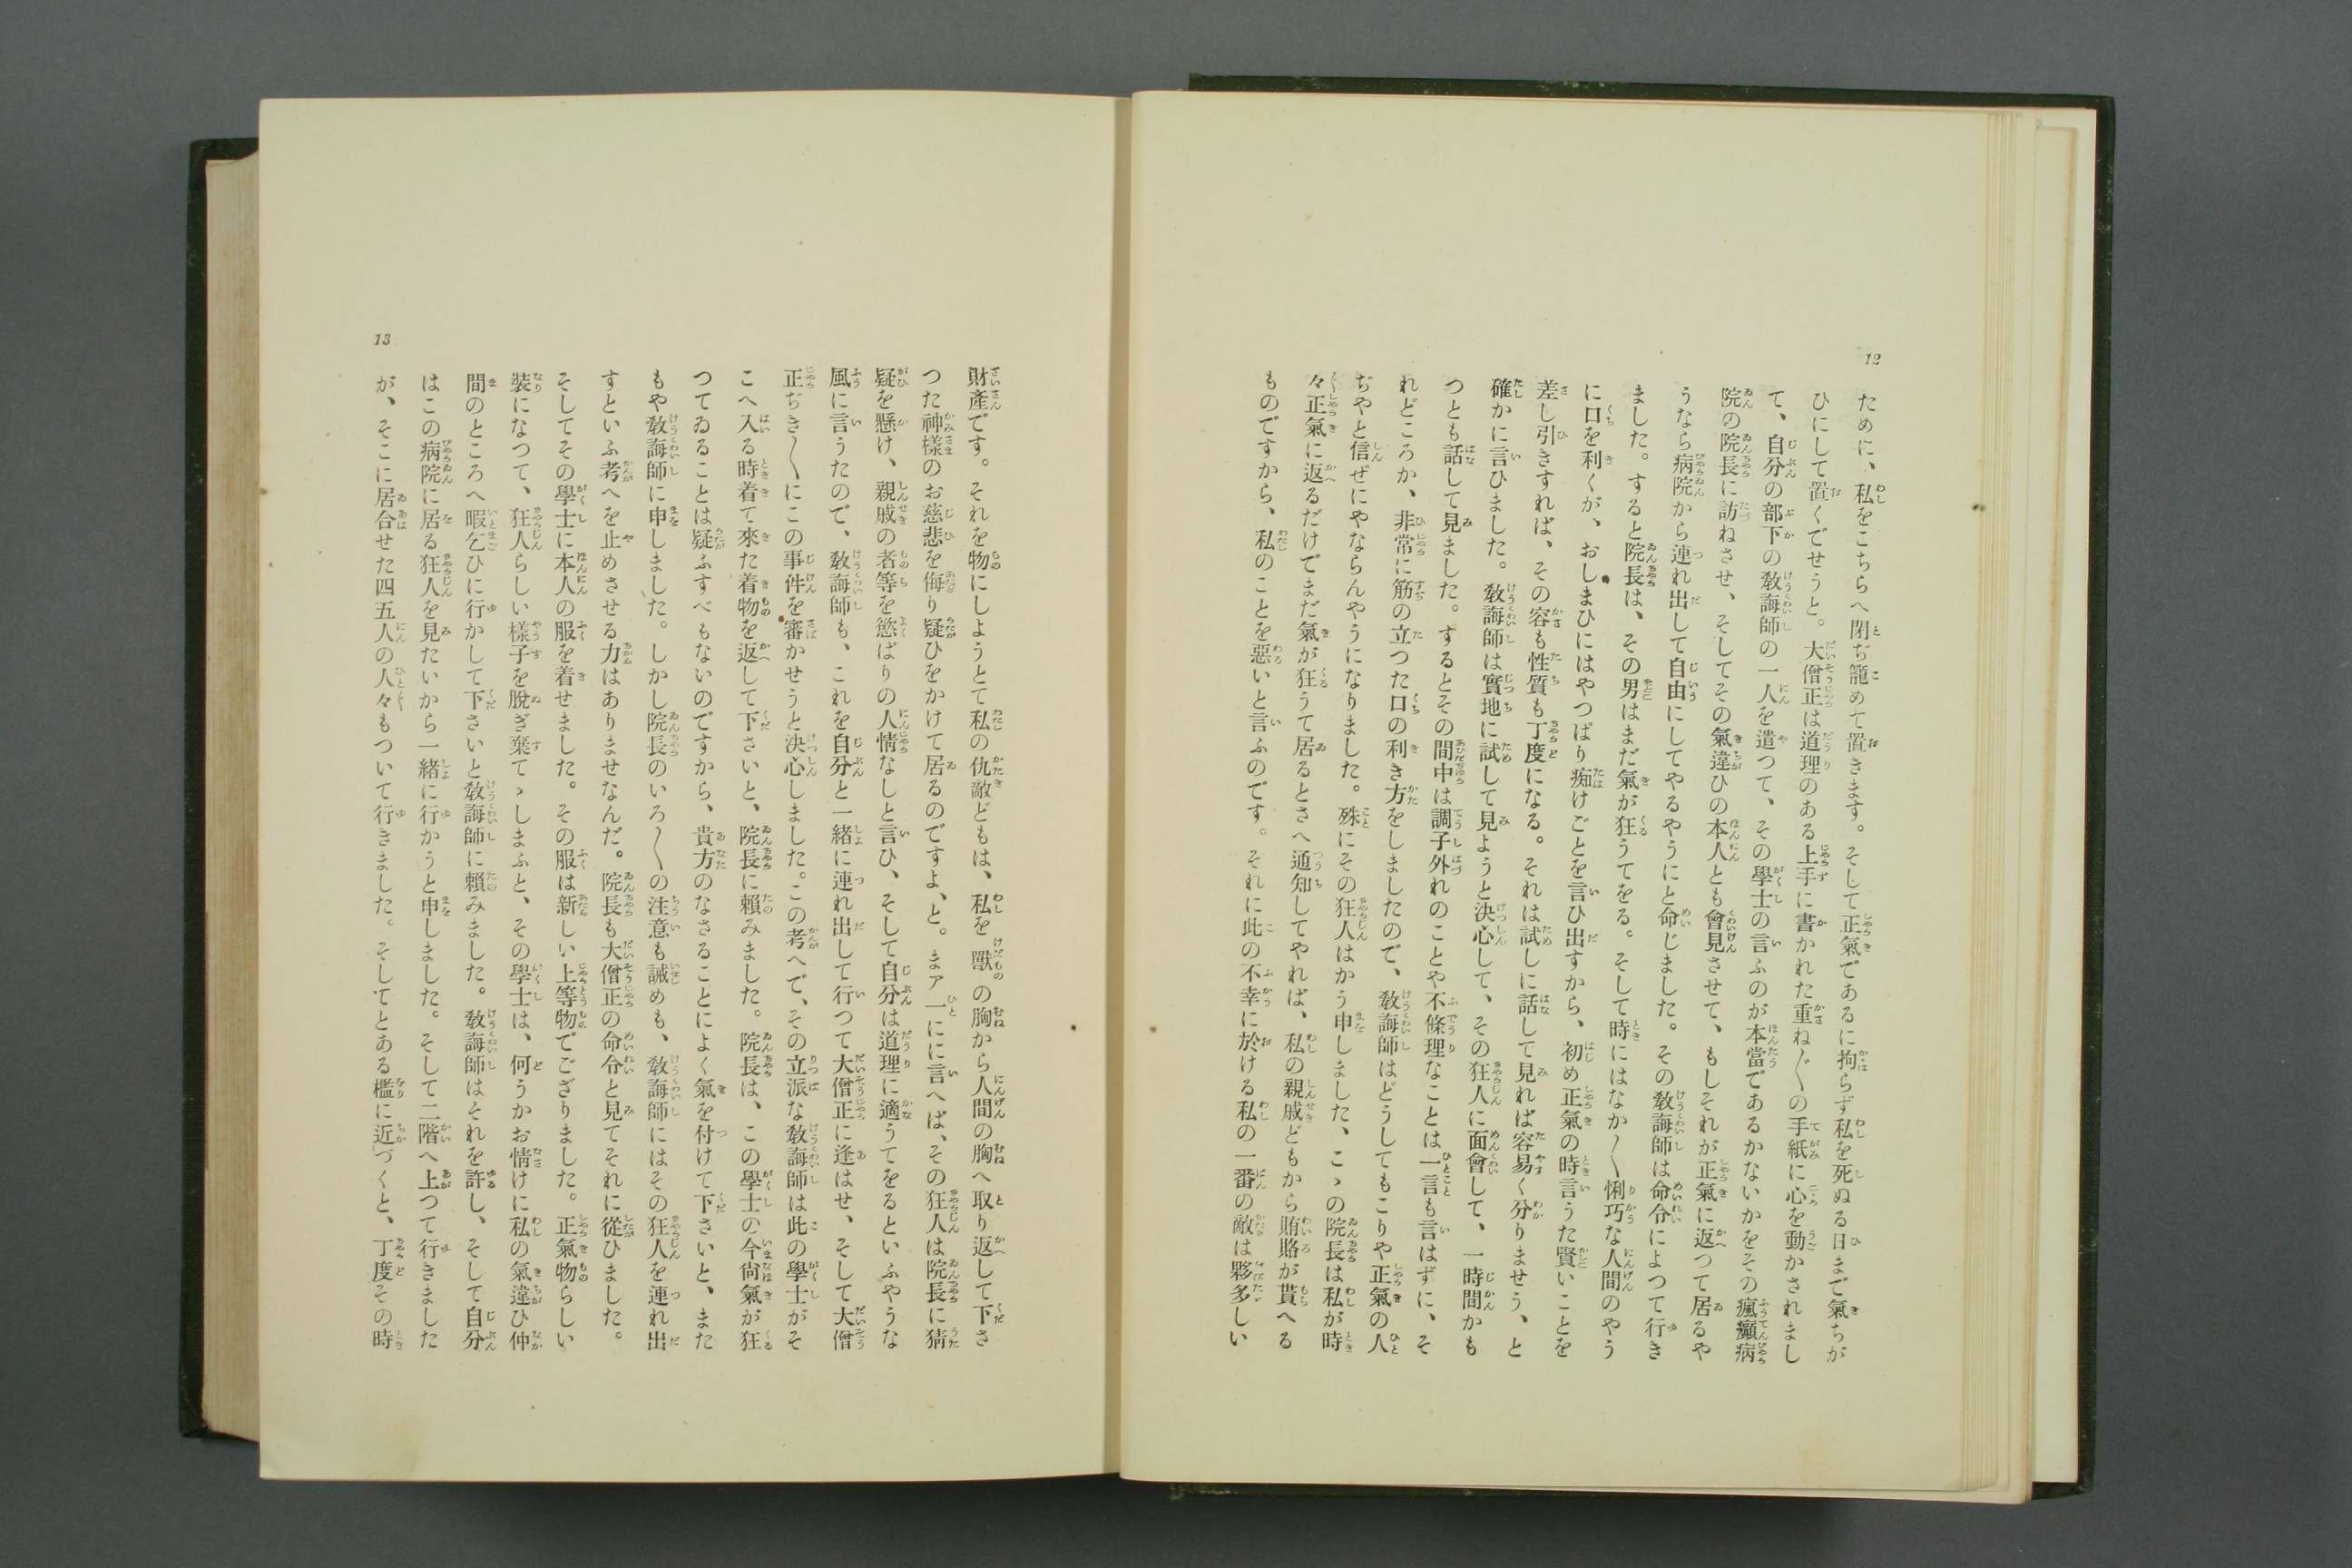 12
ために、私をこちらへ閉ぢ籠めて置きます。そして正氣であるに拘らず私を死ぬる日まで氣ちが
ひにして置くでせうと。大僧正は道理のある上手に書かれた重ね〴〵の手紙に心を動かされまし
て、自分の部下の敎誨師の一人を遣つて、その學士の言ふのが本當であるかないかをその瘋癲病
院の院長に訪ねさせ、そしてその氣違ひの本人とも會見させて、もしそれが正氣に返つて居るや
うなら病院から連れ出して自由にしてやるやうにと命じました。その敎誨師は命令によつて行き
ました。すると院長は、その男はまだ氣が狂うてをる。そして時にはなか〳〵悧巧な人間のやう
に口を利くが、おしまひにはやつぱり痴けごとを言ひ出すから、初め正氣の時言うた賢いことを
差し引きすれば、その容も性質も丁度になる。それは試しに話して見れば容易く分りませう、と
確かに言ひました。敎誨師は實地に試して見ようと決心して、その狂人に面會して、一時間かも
つとも話して見ました。するとその間中は調子外れのことや不條理なことは一言も言はずに、そ
れどころか、非常に筋の立つた口の利き方をしましたので、敎誨師はどうしてもこりや正氣の人
ぢやと信ぜにやならんやうになりました。殊にその狂人はかう申しました、こゝの院長は私が時
々正氣に返るだけでまだ氣が狂うて居るとさへ通知してやれば、私の親戚どもから賄賂が貰へる
ものですから、私のことを惡いと言ふのです。それに此の不幸に於ける私の一番の敵は夥多しい
財產です。それを物にしようとて私の仇敵どもは、私を獸の胸から人間の胸へ取り返して下さ
つた神樣のお慈悲を侮り疑ひをかけて居るのですよ、と。まア一にに言へば、その狂人は院長に猜
疑を懸け、親戚の者等を慾ばりの人情なしと言ひ、そして自分は道理に適うてをるといふやうな
風に言うたので、敎誨師も、これを自分と一緒に連れ出して行つて大僧正に逢はせ、そして大僧
正ぢき〳〵にこの事件を審かせうと決心しました。この考へで、その立派な敎誨師は此の學士がそ
こへ入る時着て來た着物を返して下さいと、院長に賴みました。院長は、この學士の今尙氣が狂
つてゐることは疑ふすべもないのですから、貴方のなさることによく氣を付けて下さいと、また
もや敎誨師に申しました。しかし院長のいろ〳〵の注意も誡めも、敎誨師にはその狂人を連れ出
すといふ考へを止めさせる力はありませなんだ。院長も大僧正の命令と見てそれに從ひました。
そしてその學士に本人の服を着せました。その服は新しい上等物でござりました。正氣物らしい
裝になつて、狂人らしい樣子を脫ぎ棄てゝしまふと、その學士は、何うかお情けに私の氣違ひ仲
間のところへ暇乞ひに行かして下さいと敎誨師に賴みました。敎誨師はそれを許し、そして自分
はこの病院に居る狂人を見たいから一緒に行かうと申しました。そして二階へ上つて行きました
が、そこに居合せた四五人の人々もついて行きました。そしてとある檻に近づくと、丁度その時
13